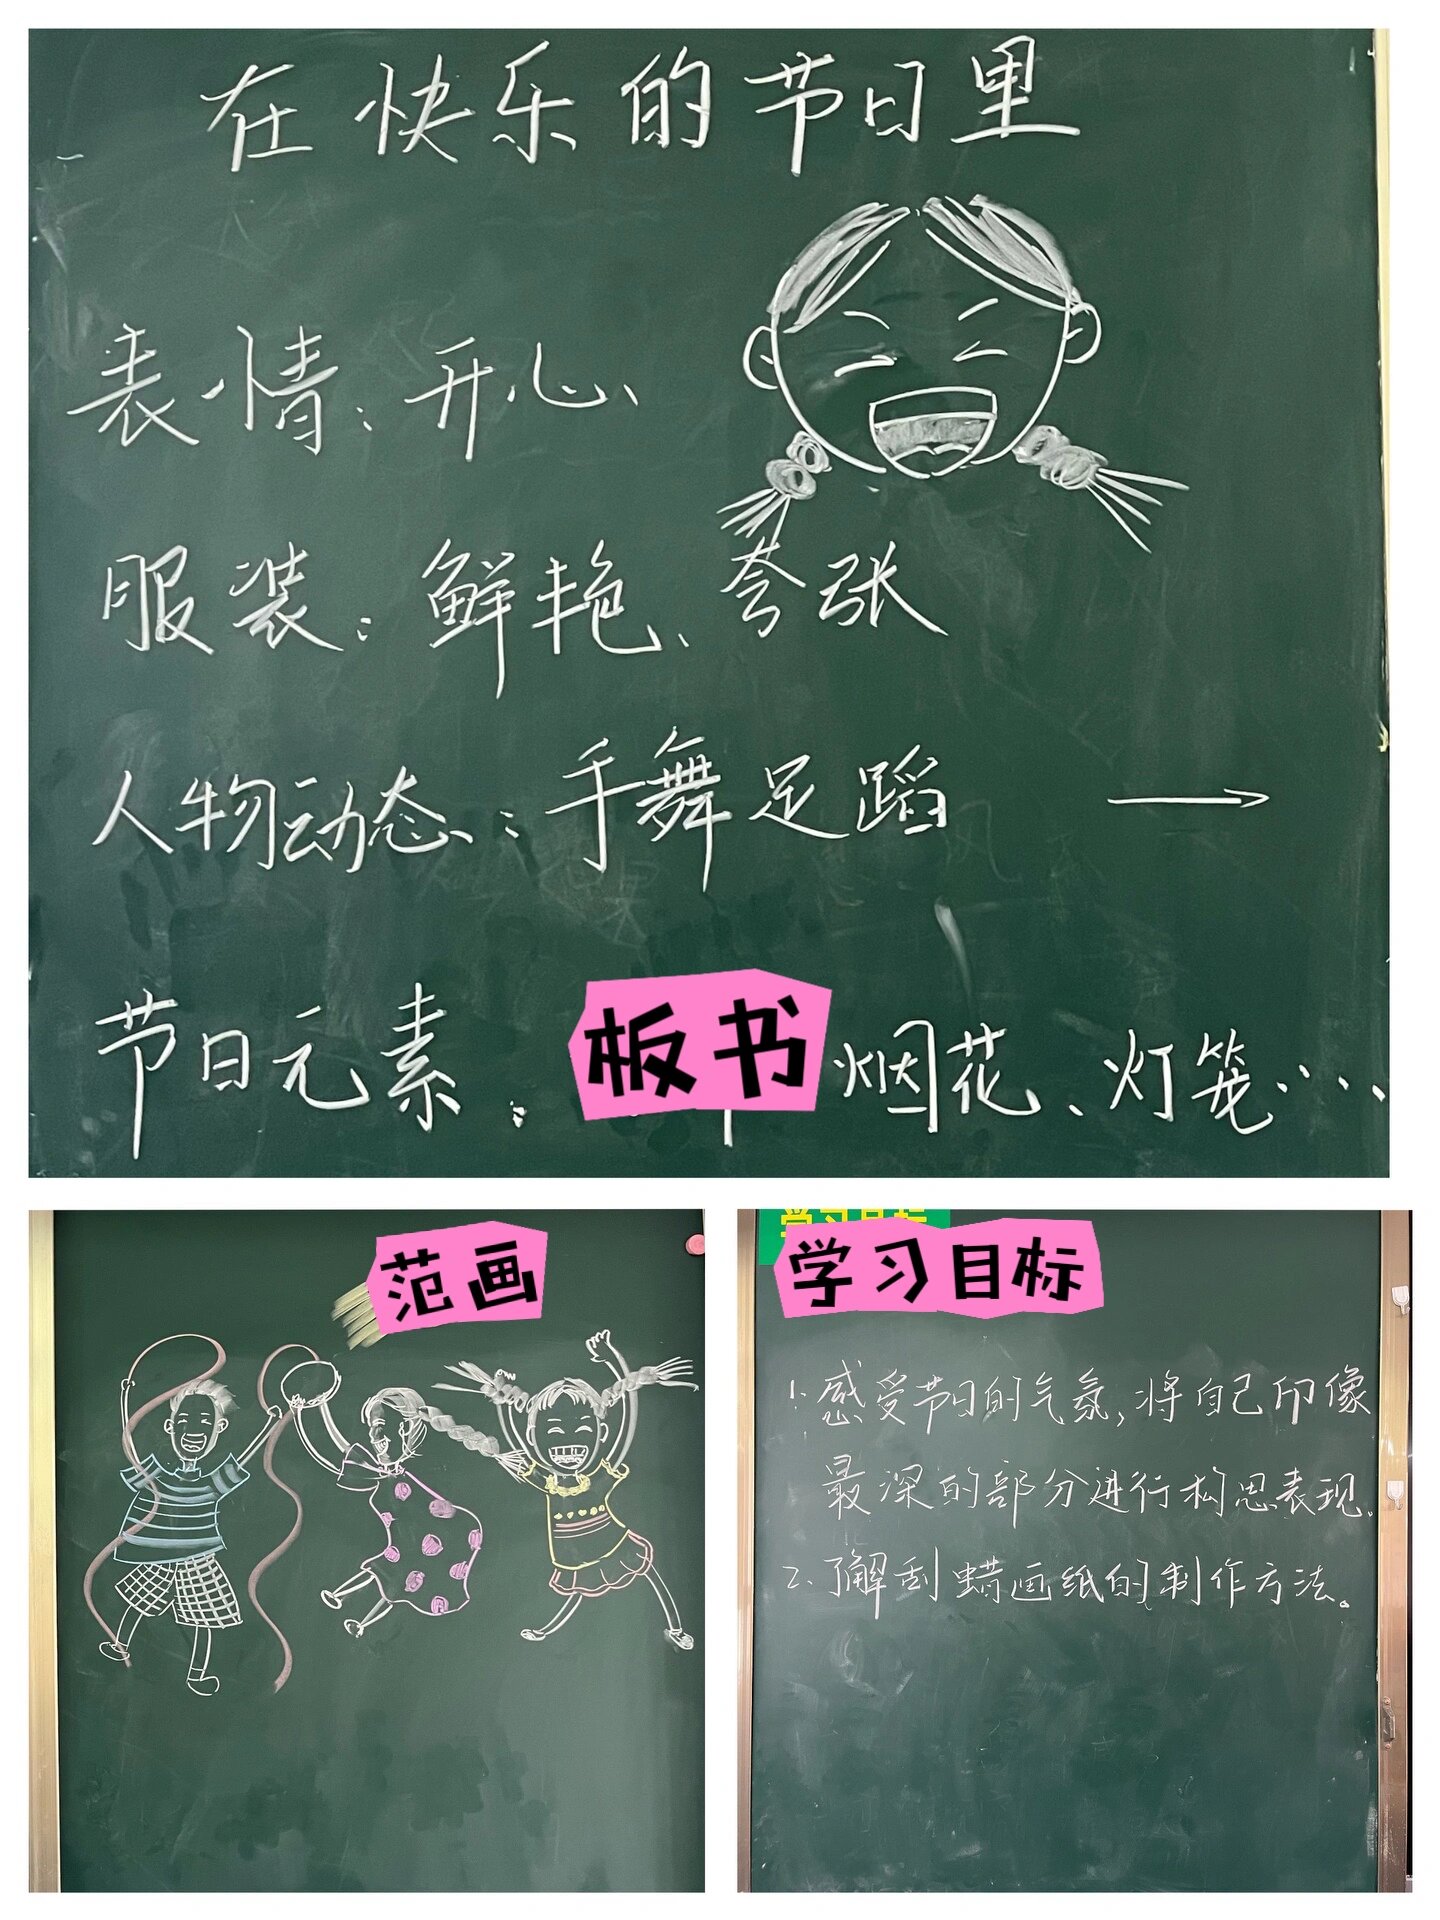 在快乐的节日里
表情：开心、
服装：鲜艳、夸张
人物动态：手舞足蹈
节日元素： 板书 烟花、灯笼……
范画
学习目标
学习目标
1.感受节日的气氛，将自己印像
最深的部分进行构思表现。
2、了解刮蜡画纸的制作方法。